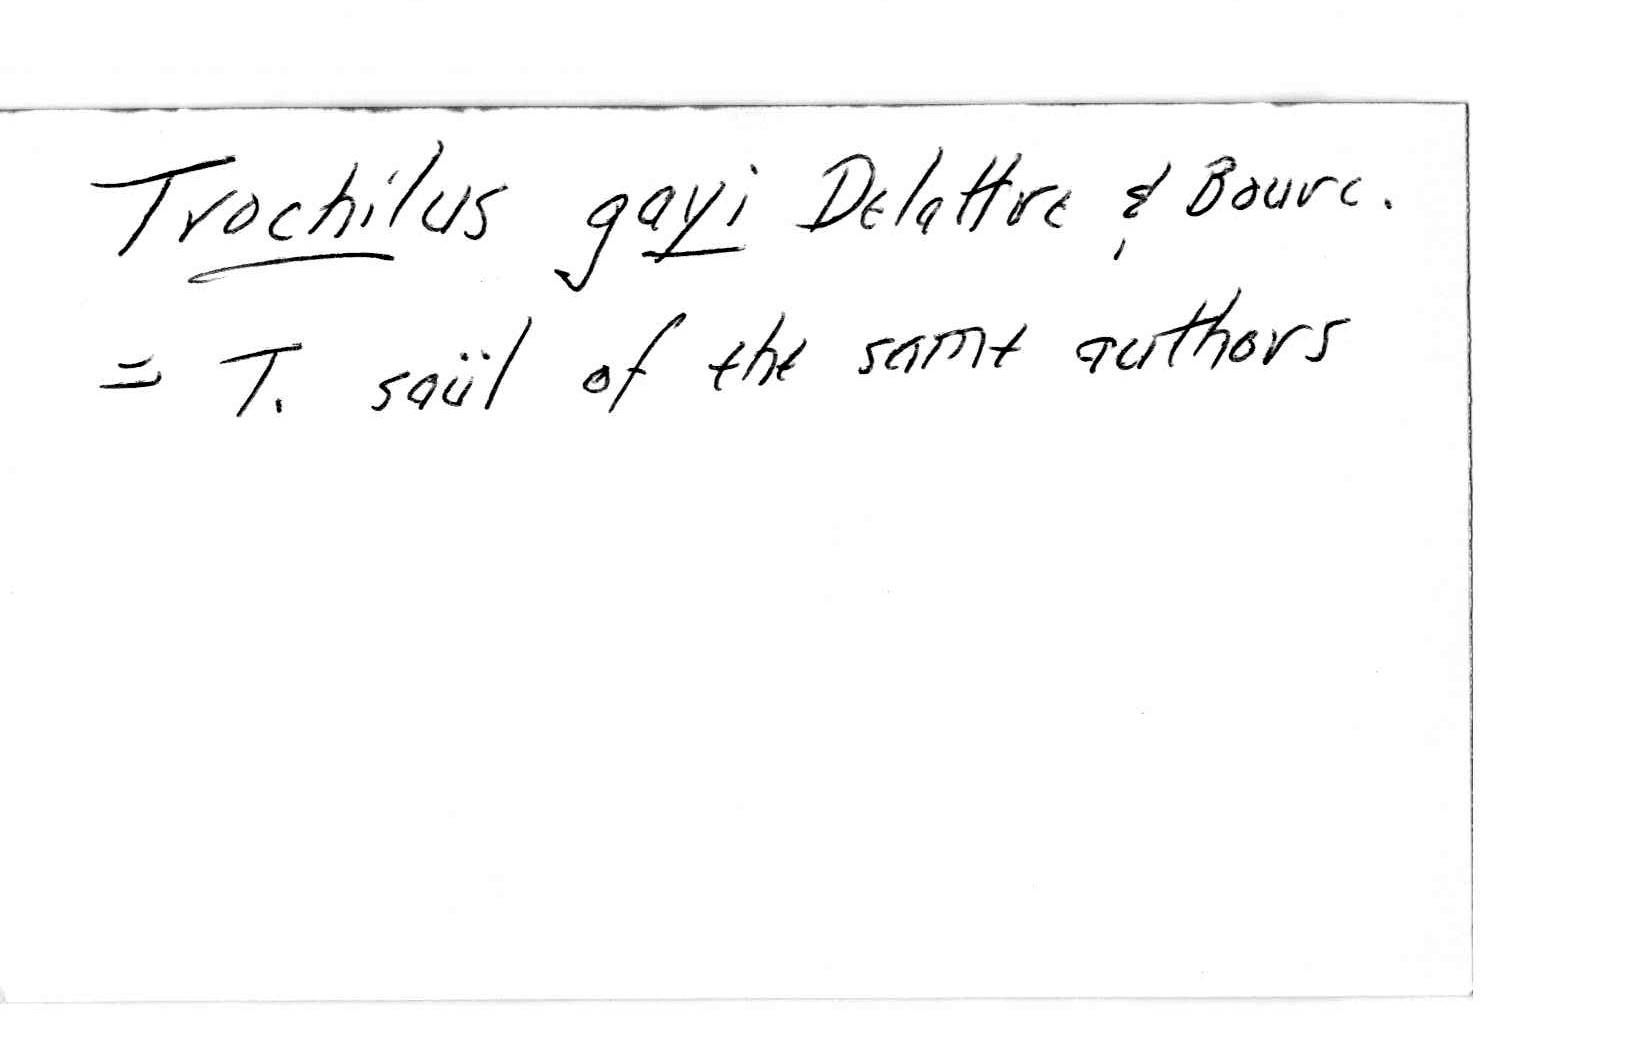 Trochilus gayi Delattre & Bourc.
= T. saül of the same authors